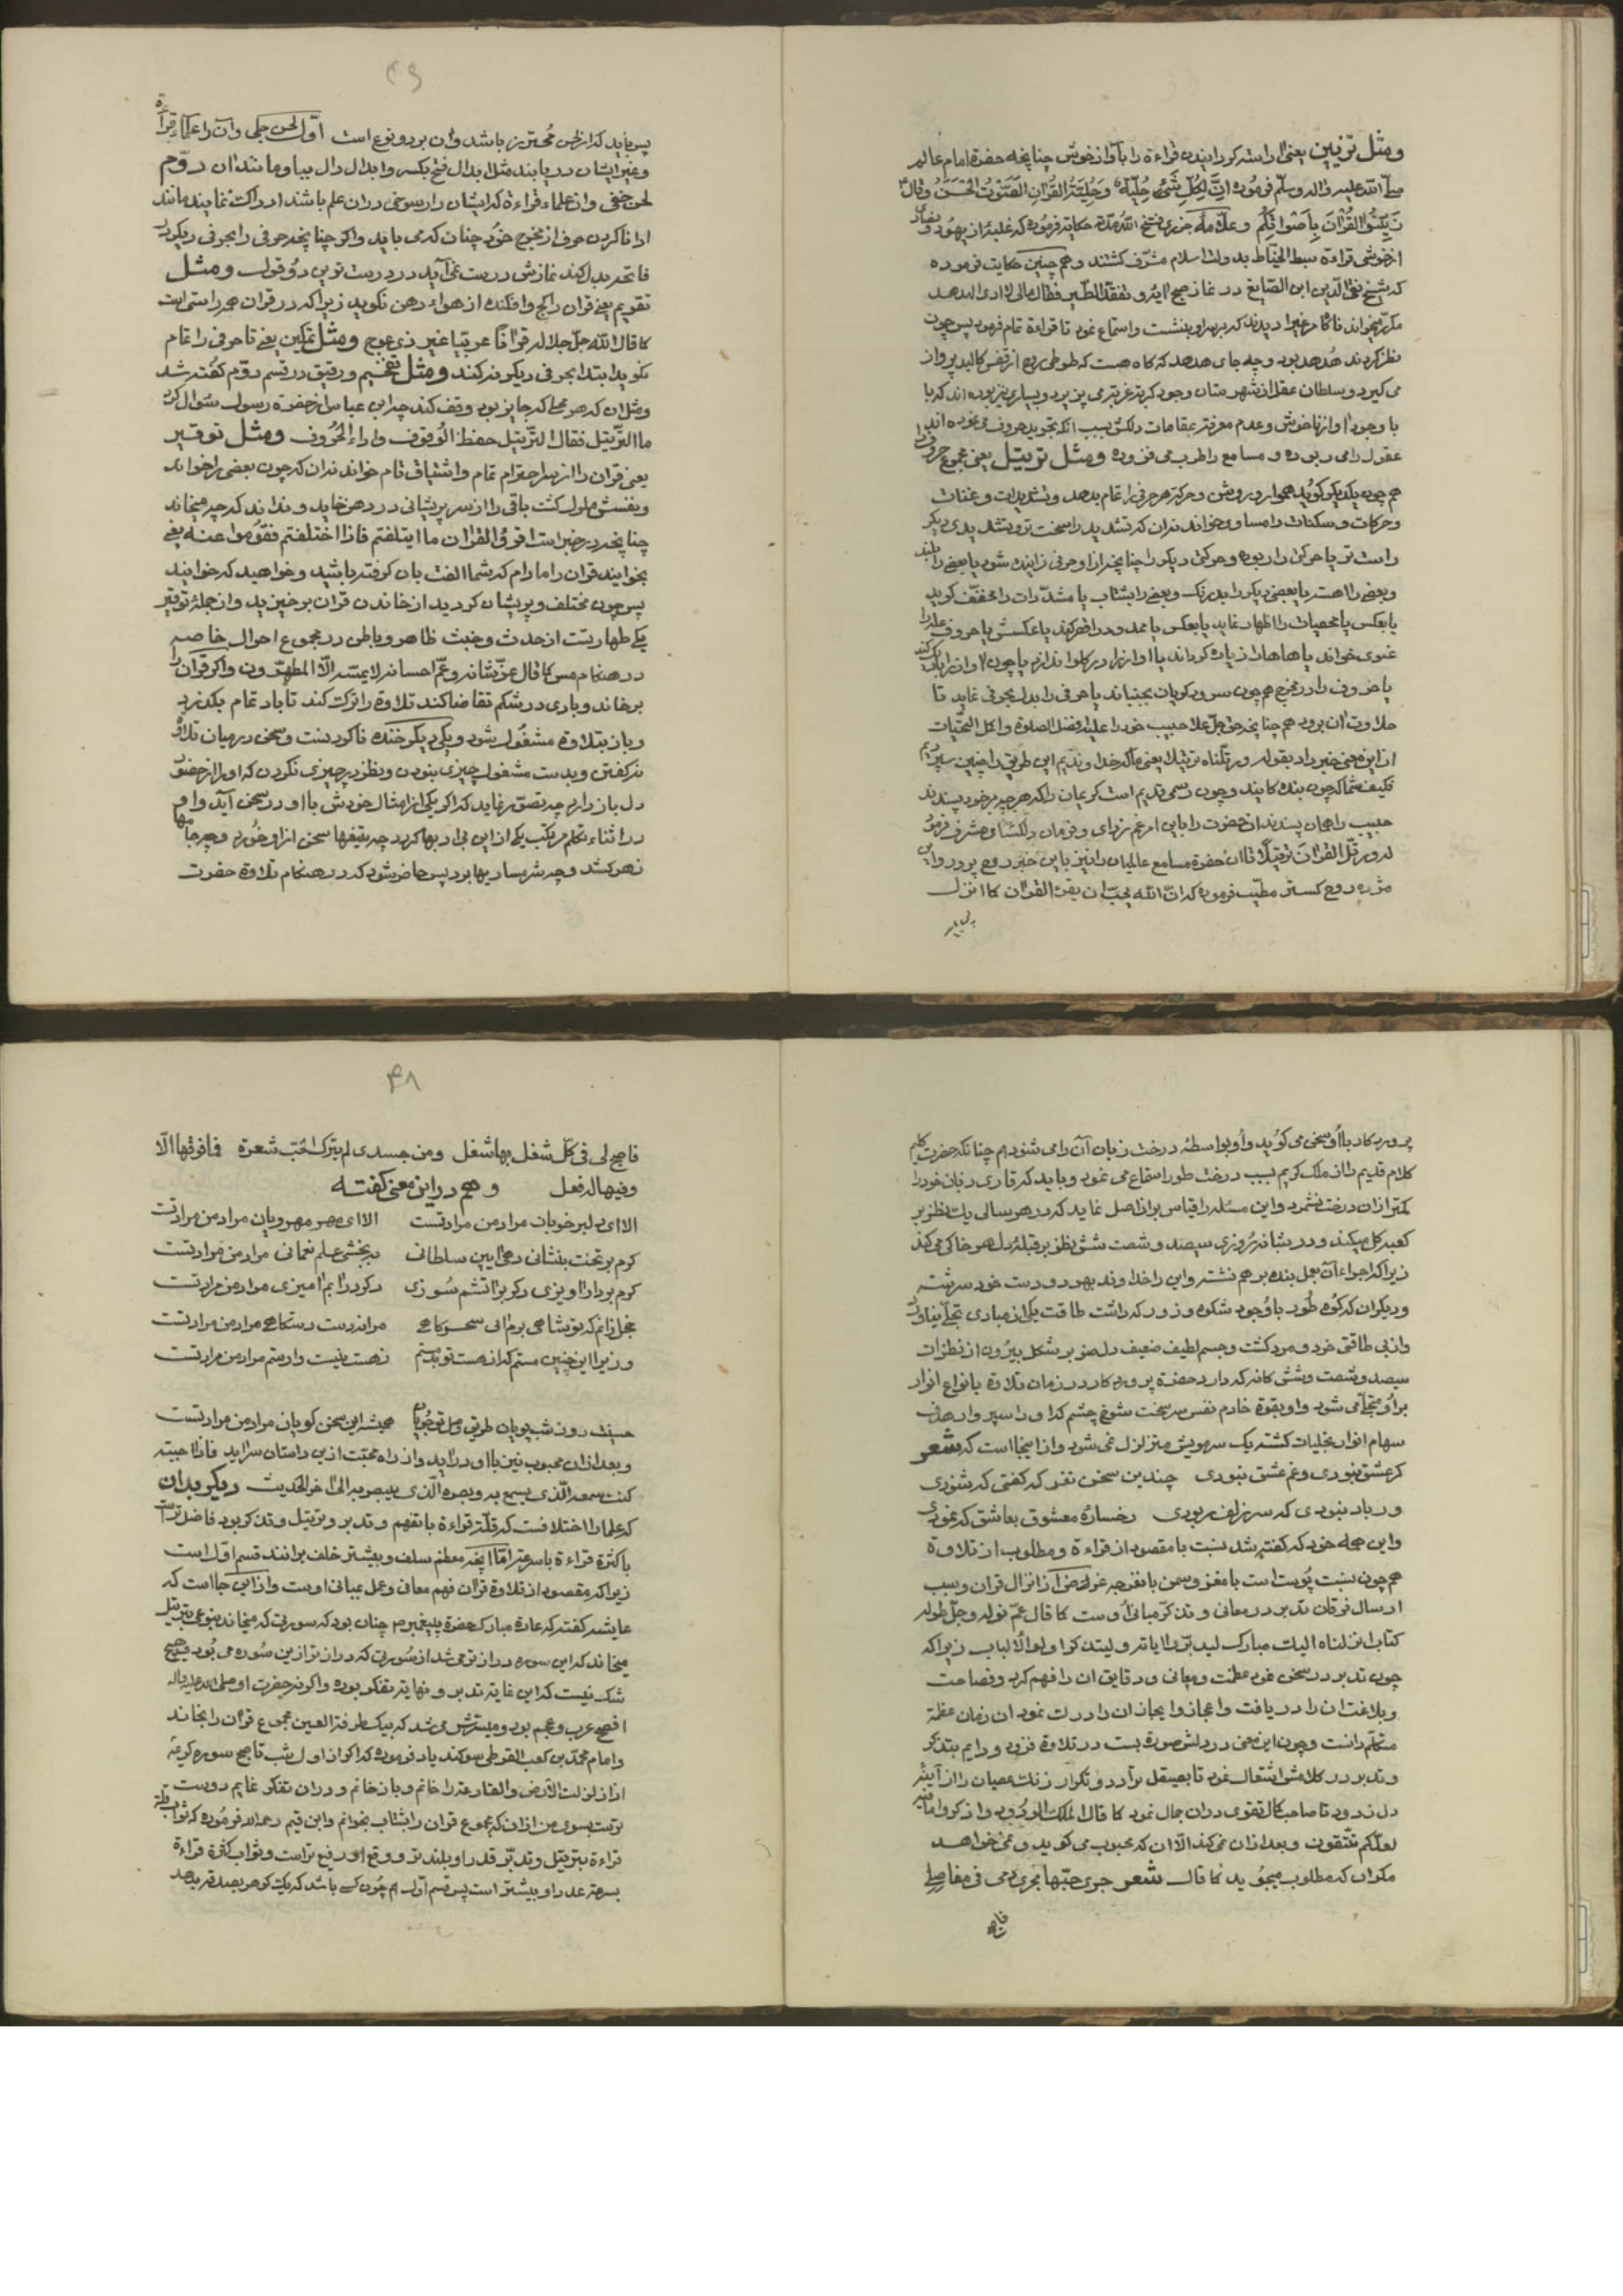 ومثل تزیین یعنی اراسته کردانیدن قراءة را بآواز خوش چنانچه حضرة امام عالم
صلّی اللّه علیه واله وسلّم فرموده اِنَّ لِکُلِّ شَیْءٍ حِلْیَةً وَحِلْیَةُ القُرْاٰنِ الصَّوْتُ الحَسَنُ وقال
زَیِّنُوا القُرْاٰنَ بِاَصْوَاتِکُم وعلّامه جزری حکایة فرموده که غلبهٔ از یهود و نصارٰی
از خوشی قراءة سبط الخیاط بدولت اسلام مشرّف کشتند وهم چنین حکایت فرموده
که شیخ تقی الدّین ابن الصّایغ در نماز صبح ایهٔ وتفقّد الطّیر فقال مالی لا اری الهدهد
مکرّر میخواند ناکاه مرغیرا دیدند که بر سر او بنشست واستماع نمود تا قراءة تمام فرمود پس چون
نظر کردند هُدهد بود وچه جای هدهد که کاه هست که طوطی روح از قفس کالبد پرواز
می کیرد وسلطان عقل از شهرستان وجود کربة غربة می پذیرد وبسیاری نیز بوده اند که با
با وجود اواز ناخوش وعدم معرفة مقامات دلکش بسبب انکه تجوید حروف می نموده اند
عقول را می ربوده ومسامع را طرب می فزوده ومثل ترتیل یعنی مجموع حروف
هم چون یکدیکر کوید هموار وبروش وحرکة هر حرفی را تمام بدهد وتشدیدات وغنات
وحرکات وسکنات را مساوی خواند نه ان که تشدید را سخت تر وتشدیدی دیکر
راست تر یا حرکتی را ربوده وحرکتی دیکر را چنانچه از او حرفی زاینده شود یا بعضی را بلند
وبعضی را اهسته یا بعضی دیکر را بدرنک وبعضی را بشتاب یا مشدّدات را مخفّف کوید
یا بعکس یا مخفیات را اظهار نماید یا بعکس یا ممدود را قصر کند یا عکسش یا حروف مد را
یا حروف را در مخرج هم چون سرود کویان بجنباند یا حرفی را بدل بحرفی نماید تا
حلاوت ان برود هم چنانچه حق جلّ علا حبیب خود را علیه افضل الصلوة واکمل التحیّات
از این معنی خبر داد بقوله ورتّلناه ترتیلا یعنی ما که خداوندیم این طریق را چنین سپردیم
فکیف شما که چون بنده کانید وچون رسمی قدیم است کریمان را که هر چه بر خود پسندند
حبیب را همان پسندند ان حضرت را باین امر غم زدای وفرمان دلکشای مشرف فرمود
که ورتّل القرٰان ترتیلًا تا ان حضرة مسامع عالمیان را نیز باین خبر روح پرور واین
مژدهٔ روح کستر مطیّب فرموده که انّ اللّه یحبّ ان یقرء القرٰان کما انزل
پس باید
۴۹
پس باید که از لحن مُحترز باشد وان بر دو نوع است اوّل لحن جلی وآن را علماء قراءة
وغیر ایشان دریابند مثل ابدال فتح بکسر وابدال دال بیا وما نند ان دوّم
لحن خفی وان علماء قراءة که ایشان را رسوخی در ان علم باشند ادراکش نمایند مانند
ادا ناکردن حرف از مخرج خود چنان که می باید واکر چنانچه حرفی را بحرفی دیکر در
فاتحه بدل کند نمازش درست نمی آید در درست ترین دو قول ومثل
تقویم یعنی قران را کج وافکنده از هواء دهن نکوید زیرا که در قران همه راستی است
کما قال اللّه جلّ جلاله قراٰنًا عربیّا غیر ذی عوج ومثل تمکین یعنی تا حرفی را تمام
نکوید ابتدا بحرفی دیکر نه کند ومثل تفخیم ورقیق در قسم دوّم کفته شد
ومثل ان که هر محل که جایز بود وقف کند چه ابن عباس از حضرة رسول سئوال کرد
ما التّرتیل فقال التّرتیل حفظ الوُقوف واداء الحُروف ومثل توقیر
یعنی قران را از سر احترام تمام واشتیاق تام خواند نه ان که چون بعضی را خواند
ونفسش ملول کشت باقی را از سر پریشانی در دهن خاید ونداند که چه میخواند
چنانچه در خبر است اقرؤا القرٰان ما ایتلفتم فاذا اختلفتم فقوموا عنه یعنی
بخوانید قران را مادام که شما الفت بان کرفته باشید وخواهید که خوانید
پس چون مختلف وپریشان کردید از خاندن قران برخیزید واز جملهٔ توقیر
یکی طهارتست از حدث وخبث ظاهر وباطن در مجموع احوال خاصه
در هنکام مس کما قال عزّ شانه وعمّ احسانه لا یمسّه الّا المطهّرون واکر قران را
برخاند وبادی در شکم تقاضا کند تلاوة را ترک کند تا باد تمام بکذرد
وباز بتلاوة مشغول شود ویکی دیکر خنده ناکردنست وسخن در میان تلاوة
نه کفتن وبدست مشغول چیزی نبودن ونظر در چیزی نکردن که او را از حضور
دل باز دارد چه تصوّر نماید که اکر یکی از امثال خودش با او در سخن آید واو
در اثناء تکلم مرتکب یکی از این بی ادبها کردد چه تیغها سخن از او خورد وچه جامها
زهر کشد وچه شرمساریها برد پس حاضر شود که در هنکام تلاوة حضرت
پروردکار با او سخن می کوید واُو بواسطهٔ درخت زبان آن را می شنود هم چنانکه حضرت کلیم
کلام قدیم را از ملک کریم بسبب درخت طور استماع می نمود وباید که قاری زبان خود را
کمتر از ان درخت نشمرد واین مسئله را قیاس بر ان اصل نماید که در هر سالی یک نظر بر
کعبه کل میکند ودر شبانه روزی سیصد وشصت شش نظر بر قبلهٔ دل هر خاکی می کند
زیرا که اجزاء آن بعمل بنده بر هم نشسته واین را خداوند بهر دو دست خود سرشته
ودیکر ان که کوه طُور با وُجود شکوه وزور که داشت طاقت یکی از مبادی تجلّی نیاورد
واز بی طاقتی خرد ومرد کشت وجسم لطیف ضعیف دل صنوبر شکل بیرون از نظرات
سیصد وشصت وشش کانه که دارد حضرة پروردکار در زمان تلاوة بانواع انوار
بر او متجلّی می شود واو بقوة خادم نفس سر سخت شوخ چشم کدا و را سپر وار هدف
سهام انوار تجلیات کشته یک سر مویش متزلزل نمی شود واز اینجا است که شعر
کر عشق نبودی وغم عشق نبودی چندین سخن نغز که کفتی که شنودی
ور باد نبودی که سر زلف ربودی رخسارهٔ معشوق بعاشق که نمودی
واین جمله خود که کفته شد نسبت با مقصود از قراءة ومطلوب از تلاوة
هم چون نسبت پوست است با مغز وسمن با نغز چه غرض از انزال قران وسبب
ارسال فرقان تدبر در معانی وتذکّر مبانی اُوست کما قال عمّ نواله وجلّ طوله
کتاب انزلناه الیک مبارک لیدبّروا ایاته ولیتذکر اولوا الالباب زیرا که
چون تدبر در سخن نمود عظمت ومعانی ودقایق ان را فهم کرد وفصاحت
وبلاغت ان را دریافت واعجاز وایجاز ان را درک نمود ان زمان عظمة
متکلّم دانست وچون این معنی در دلش صورة بست در تلاوة فزود ودایم بتذکر
وتدبر در کلامش اشتغال نمود تا بصیقل تردد وتکرار زنک عصیان را از آینهٔ
دل زدود تا صاحب کمال تقوی در ان جمال نمود کما قال الملک الودود واذکروا ما فیه
لعلّکم تتّقون وبعد از ان نمی کند الّا ان که محبوب می کوید ونمی خواهد
مکر ان که مطلوب میجوید کما قال شعر جری حبّها مجری دمی فی مفاصلی
فاصبح
۴۸
فاصبح لی فی کلّ شغل بها شغل ومن جسدی لم یترک الحبّ شعرة فما فوقها الّا
وفیها له فعل وهم در این معنی کفته
الا ای دلبر خوبان مراد من مرادتست الا ای مهر مهرویان مراد من مرادتست
کرم بر تخت بنشانی دهی ایین سلطانی ببخشی علم نعمانی مراد من مرادتست
کرم بر دار اویزی وکر بر اتشم سُوزی وکر در انم امیزی مراد من مرادتست
خجل زانم که تو شاهی برم انی سحرکاهی مرا نه دست دستکاهی مراد من مرادتست
وزیرا این چنین مستم که از هست تو هستم نه هست نیست وارستم مراد من مرادتست
حسینت روز شب پویان طریق وصل تو جویان همیشه این سخن کویان مراد من مرادتست
وبعد از ان محبوب نیز با او در اید واز راه محبّت از این داستان سراید فاذا احببته
کنت سمعه الّذی یسمع به وبصره الّذی یبصر به الی اخر الحدیث ودیکر بدان
که علما را اختلافست که قلّة قراءة با تفهم وتدبر وترتیل وتذکر بود فاضل تر است
یا کثرة قراءة با سرعة امّا انچه معظم سلف وبیشتر خلف برانند قسم اول است
زیرا که مقصود از تلاوة قران فهم معانی وعمل بمبانی اوست واز این جا است که
عایشه کفته که عادة مبارک حضرة پیغمبر م چنان بود که سورتی که میخاند بنوعی بترتیل
میخاند که این سوره دراز تر می شد از سُورتی که دراز تر از این سُوره می بُود وهیچ
شک نیست که این غایة تدبر ونهایة تفکر بوده واکر نه حضرت او صلی الله علیه واله
افصح عرب وعجم بود ومیسّرش می شد که بیک طرفة العین مجموع قران را بخاند
وامام محمّد بن کعب القرظی سوکند یاد فرموده که اکر از اول شب تا صبح سوره کریمهٔ
اذا زلزلت الارض والقارعه را خانم وباز خانم ودر ان تفکر نمایم دوست
ترست بسوی من از ان که مجموع قران را بشتاب بخوانم وابن قیم رحمه الله فرموده که ثواب قلة
قراءة بترتیل وتدبّر قدر او بلند تر ووقع او رفیع تر است وثواب کثرة قراءة
بسرعة عدد او بیشتر است پس قسم اوّل هم چُون کسی باشد که یک کوهر بصدقه بدهد